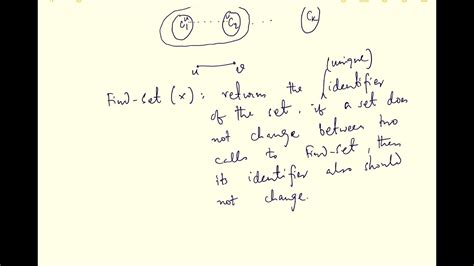 C₁ ..... C₂ ... Cₖ
u v
(unique)
Find-Set (x) : returns the identifier
of the set. if a set does
not change between two
calls to Find-Set, then
its identifier also should
not change.